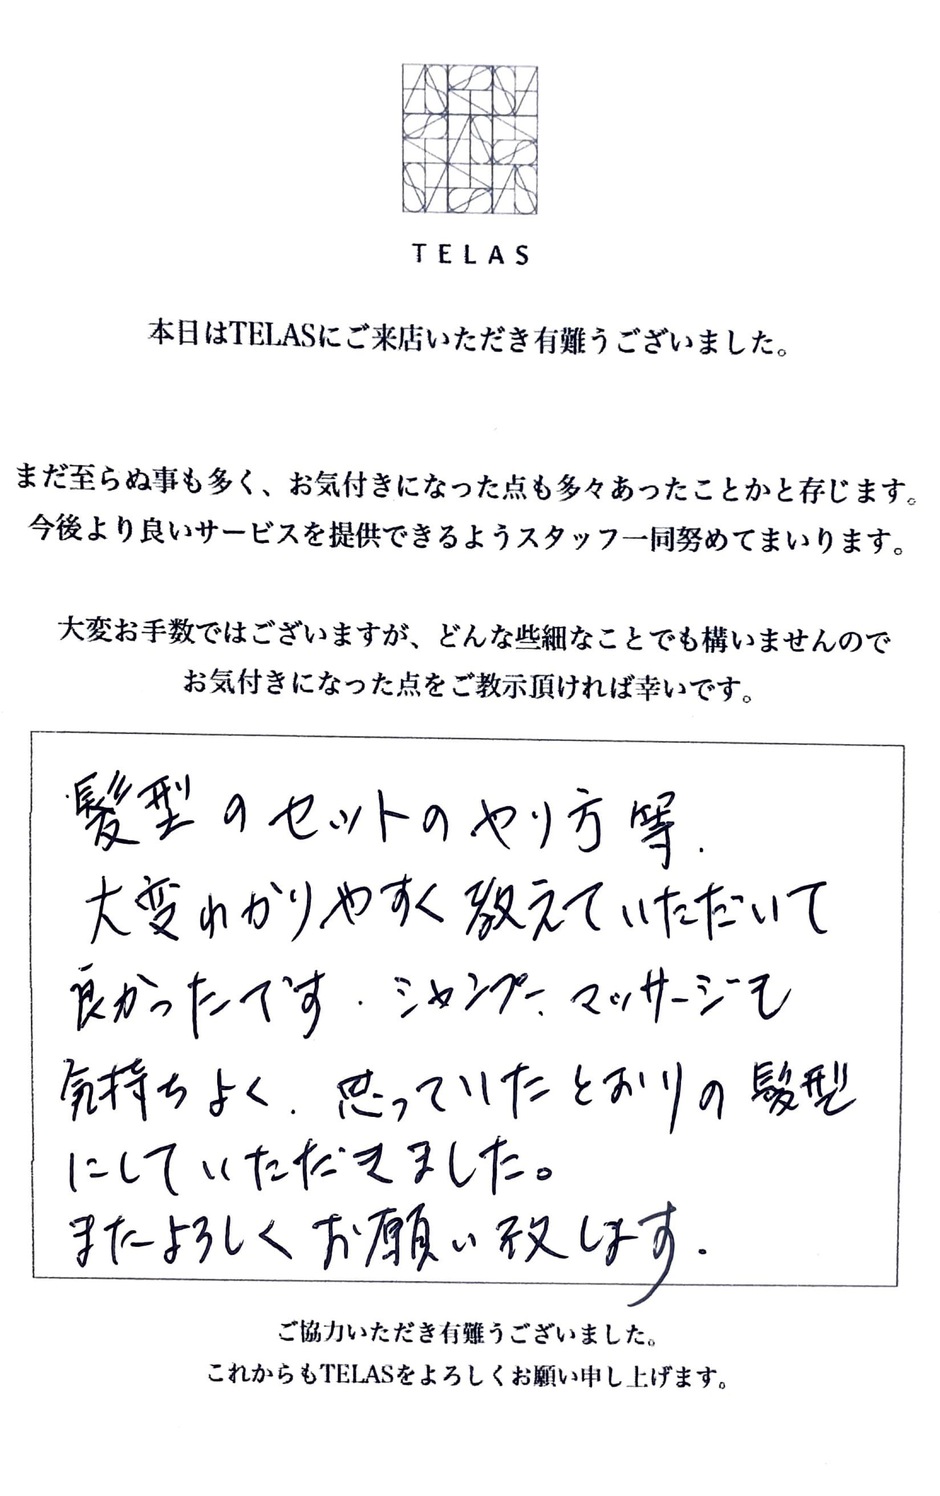 TELAS
本日はTELASにご来店いただき有難うございました。
まだ至らぬ事も多く、お気付きになった点も多々あったことかと存じます。
今後より良いサービスを提供できるようスタッフ一同努めてまいります。
大変お手数ではございますが、どんな些細なことでも構いませんので
お気付きになった点をご教示頂ければ幸いです。
髪型のセットのやり方等、
大変わかりやすく教えていただいて
良かったです。シャンプー、マッサージも
気持ちよく、思っていたとおりの髪型
にしていただきました。
またよろしくお願い致します。
ご協力いただき有難うございました。
これからもTELASをよろしくお願い申し上げます。